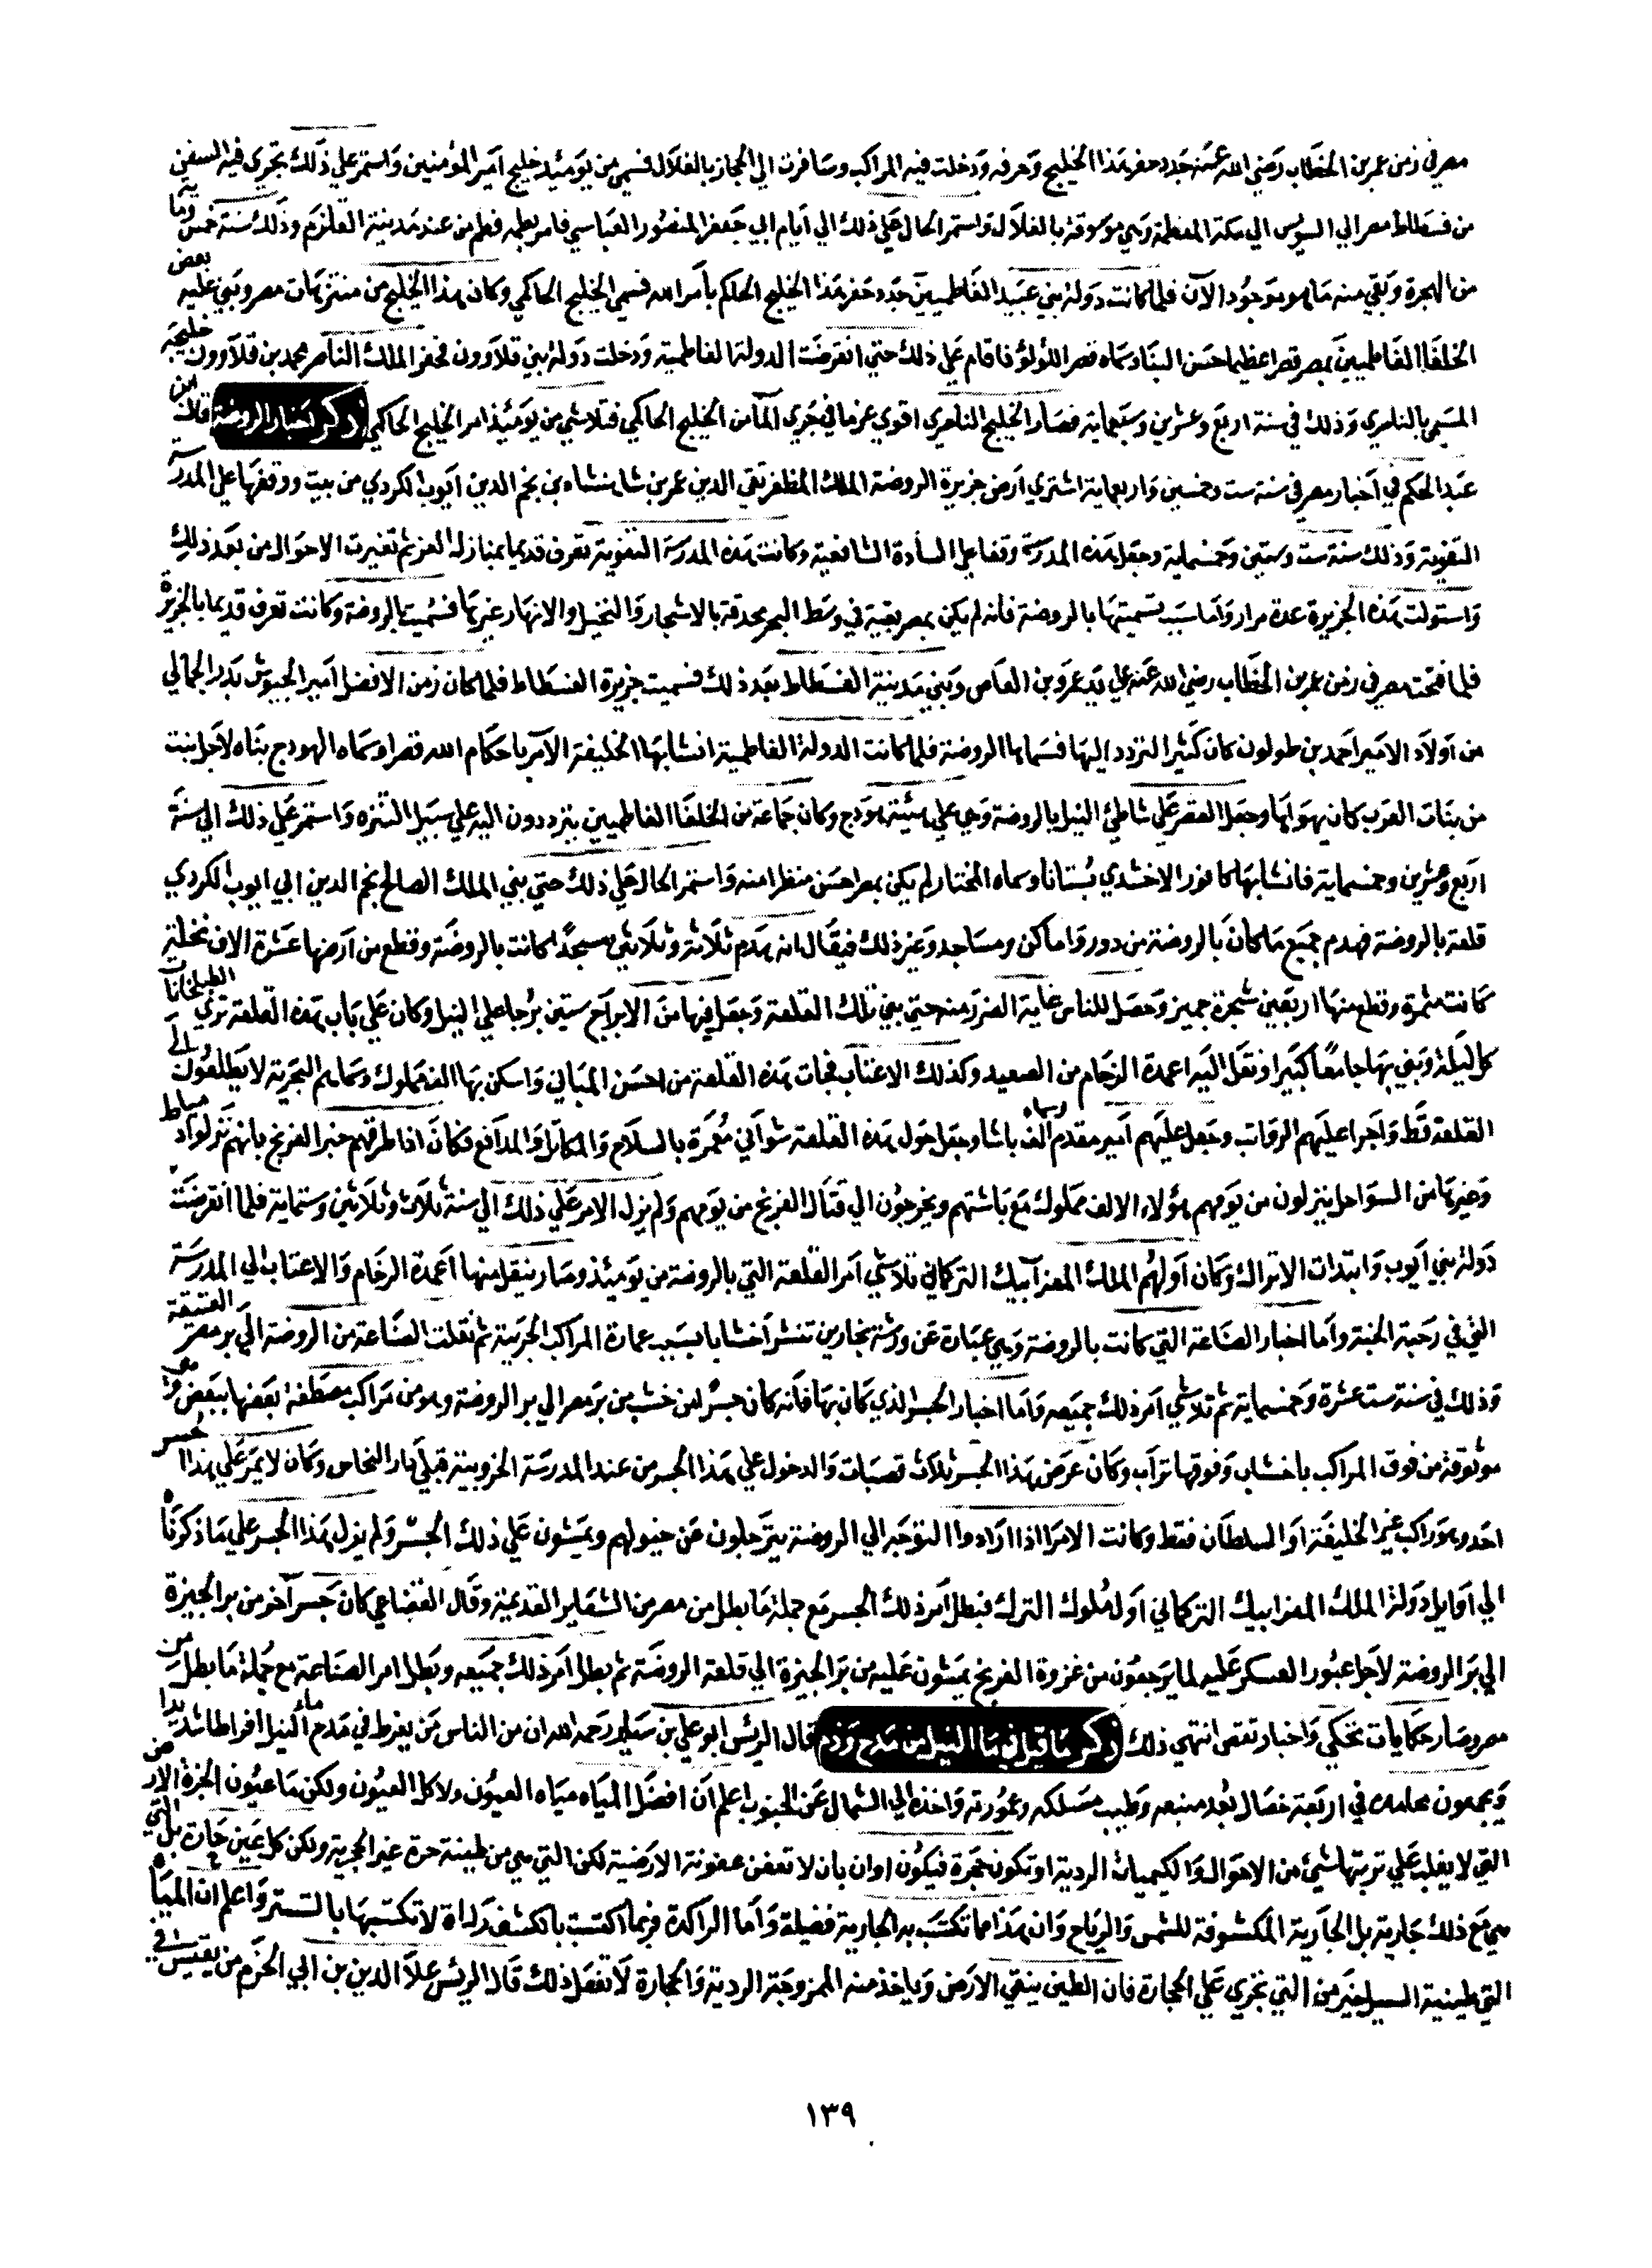 مصر في زمن عمر بن الخطاب رضي الله عنه جدد حفر هذا الخليج وعرفه ودخلت فيه المراكب وسافرت الي الحجاز بالغلال فسمي من يومئذ خليج امير المؤمنين واستمر علي ذلك تجري فيه السفن
من فسطاط مصر الي السويس الي مكة المعظمة وهي موسوقة بالغلال واستمر الحال علي ذلك الي أيام ابي جعفر المنصور العباسي فامر بطمه فطم من عند مدينة القلزم وذلك سنة خمس وماية
من الهجرة وبقي منه ما هو موجود الآن فلما كانت دولة بني عبيد الفاطميين جدد حفر هذا الخليج الحاكم بأمر الله فسمي الخليج الحاكمي وكان هذا الخليج من منتزهات مصر وبني عليه بعض
الخلفا الفاطميين بمصر قصرا عظيما حسن البنا وسماه قصر اللؤلؤ فاقام علي ذلك حتي انقرضت الدولة الفاطمية ودخلت دولة بني قلاوون فحفر الملك الناصر محمد بن قلاوون خليجه
المسمي بالناصري وذلك في سنة اربع وعشرين وسبعماية فصار الخليج الناصري اقوي عزما في جري المآ من الخليج الحاكمي فتلاشي من يومئذ امر الخليج الحاكمي ذكر اخبار الروضة قال ابن
عبد الحكم في أخبار مصر في سنة ست وخمسين واربعماية اشتري أرض جزيرة الروضة الملك المظفر تقي الدين عمر بن شاهنشاه بن نجم الدين أيوب الكردي من بيت ووقفها علي المدرسة
التقوية وذلك سنة ست وستين وخمسماية وجعل هذه المدرسة وقفا علي السادة الشافعية وكانت هذه المدرسة التقوية تعرف قديما بمنازل العز ثم تغيرت الاحوال من بعد ذلك
واستولت هذه الجزيرة عدة مرار وأما سبب تسميتها بالروضة فانه لم يكن بمصر بقية في وسط البحر محدقة بالاشجار والنخيل والانهار غيرها فسميت بالروضة وكانت تعرف قديما بالجزيرة
فلما فتحت مصر في زمن عمر بن الخطاب رضي الله عنه علي يد عمرو بن العاص وبني مدينة الفسطاط بعد ذلك فسميت جزيرة الفسطاط فلما كان زمن الافضل أمير الجيوش بدر الجمالي
من أولاد الامير احمد بن طولون كان كثير التردد إليها فسماها الروضة فلما كانت الدولة الفاطمية انشا بها الخليفة الآمر باحكام الله قصرا وسماه الهودج بناه لاجل بنت
من بنات العرب كان يهواها وجعل القصر علي شاطئ النيل بالروضة وهي علي هيئة هودج وكان جماعة من الخلفا الفاطميين يترددون اليه علي سبيل التنزه واستمر علي ذلك الي سنة
اربع وعشرين وخمسماية فانشا بها كافور الاخشدي بستانا وسماه المختار لم يكن بمصر احسن منظرا منه واستمر الحال علي ذلك حتي بني الملك الصالح نجم الدين ابي ايوب الكردي
قلعة بالروضة فهدم جميع ما كان بالروضة من دور واماكن ومساجد وغير ذلك فيقال انه هدم ثلاثة وثلاثين مسجدا كانت بالروضة وقطع من أرضها عشرة الاف نخلة
كانت مثمرة وقطع منها اربعين شجرة جميز وحصل للناس غاية الضرر منه حتي بني تلك القلعة وجعل فيها من الابراج ستين برجا علي النيل وكان علي باب هذه القلعة تري الطبلخانات
كل ليلة وبني بها جامعا كبيرا ونقل اليه اعمدة الرخام من الصعيد وكذلك الاعتاب فجات هذه القلعة من احسن المباني واسكن بها الف مملوك وسماهم البحرية لا يطلعون الي
القلعة قط وأجرا عليهم الرواتب وجعل عليهم أمير مقدم الف وسماه باشا وجعل حول هذه القلعة شواني معمرة بالسلاح والمكاحل والمدافع فكان اذا طرقهم خبر الفرنج بانهم نزلوا دمياط
وغيرها من السواحل ينزلون من يومهم هؤلاء الالف مملوك مع باشتهم ويخرجون الي قتال الفرنج من يومهم ولم يزل الامر علي ذلك الي سنة ثلاث وثلاثين وستماية فلما انقرضت
دولة بني أيوب وابتدات الاتراك وكان أولهم الملك المعز آيبك التركماني تلاشي أمر القلعة التي بالروضة من يومئذ وصار ينقل منها أعمدة الرخام والاعتاب الي المدرسة
التي في رحبة الحنة وأما اخبار الصناعة التي كانت بالروضة وهي عبارة عن ورشة نجارين تنشر أخشابا بسبب عمارة المراكب الحربية ثم نقلت الصناعة من الروضة الي بر مصر العتيقة
وذلك في سنة ست عشرة وخمسماية ثم تلاشي أمر ذلك جميعه وأما اخبار الجسر الذي كان بها فانه كان جسر من خشب من بر مصر الي بر الروضة وهو من مراكب مصطفة بعضها ببعض
موثوقة من فوق المراكب باخشاب وفوقها تراب وكان عرض هذا الجسر ثلاث قصبات والدخول علي هذا الجسر من عند المدرسة الخروبية قبلي دار النحاس وكان لا يمر علي هذا الجسر
احد وهو راكب غير الخليفة أو السلطان فقط وكانت الامرا اذا ارادوا التوجه الي الروضة يترجلون عن خيولهم ويمشون علي ذلك الجسر ولم يزل هذا الجسر علي ما ذكرناه
الي أوايل دولة الملك المعز ايبك التركماني أول ملوك الترك فبطل أمر ذلك الجسر مع جملة ما بطل من مصر من الشعاير القديمة وقال القضاعي كان جسر آخر من بر الجيزة
الي بر الروضة لاجل عبور العسكر عليه لما يرجعون من غزوة الفرنج يمشون عليه من بر الجيزة الي قلعة الروضة ثم بطل أمر ذلك جميعه وبطل امر الصناعة مع جملة ما بطل من
مصر وصار حكايات تحكي واخبار تقص انتهي ذلك ذكر ما قيل في ما النيل من مدح وذم قال الرئيس ابو علي بن سينا رحمه الله ان من الناس من يفرط في مدح ماء النيل افراطا شديدا
ويجمعون محامده في اربعة خصال بعد منبعه وطيب مسلكه وغمورته واخذه الي الشمال عن الجنوب اعلم أن افضل المياه مياه العيون ولا كل العيون ولكن ما عيون الحرة الارض
التي لا يغلب علي تربتها شئ من الاحوال والكيميات الردية او تكون حجرة فيكون اوان بان لا تعفن عفونة الارضية لكن التي هي من طينة حرة غير الحجرية ولكن كل عين جارة بل التي
هي مع ذلك جارية بل الجارية المكشوفة للشمس والرياح وان هذا مما تكتسب به الجارية فضيلة وأما الراكدة فربما اكتست بالكشف رداة لا تكتسبها بالستر واعلم ان المياه
التي طينية السيل خير من التي تجري علي الحجارة فان الطين ينقي الارض وياخذ منه الممزوجة الردية والحجارة لا تفعل ذلك قال الرئيس علا الدين بن ابي الحزم من نفيس في
١٣٩